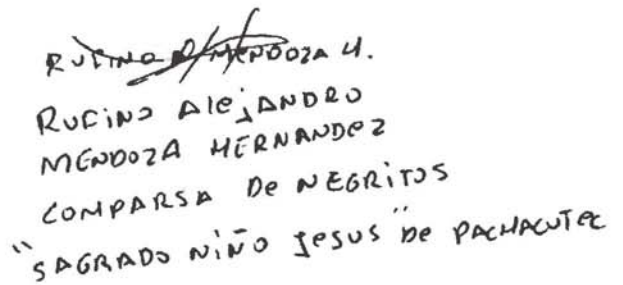 RUFINO A/MENDOZA H.
RUFINO AlejANDRO
MENDOZA HERNANDeZ
COMPARSA De NEGRiTOS
"SAGRADO NiÑO JeSUS" De PACHACUTeC